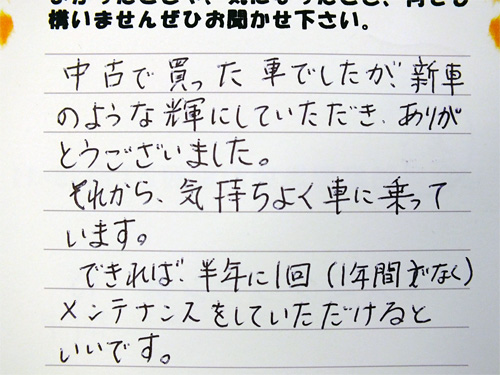 構いませんぜひお聞かせ下さい。
中古で買った車でしたが、新車
のような輝にしていただき、ありが
とうございました。
それから、気持ちよく車に乗って
います。
できれば、半年に1回(1年間でなく)
メンテナンスをしていただけると
いいです。